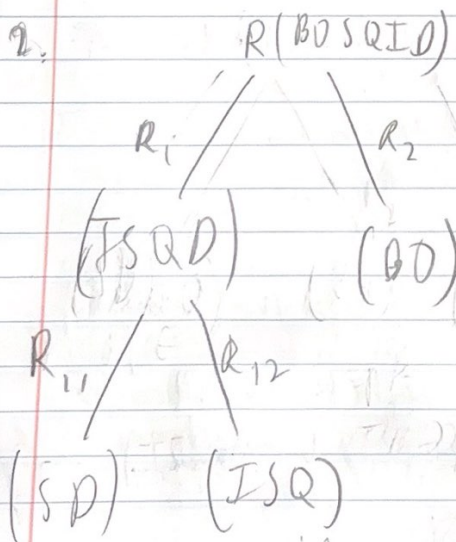 2.
R(BOSQID)
R1 R2
(ISQD) (BO)
R11 R12
(SD) (ISQ)